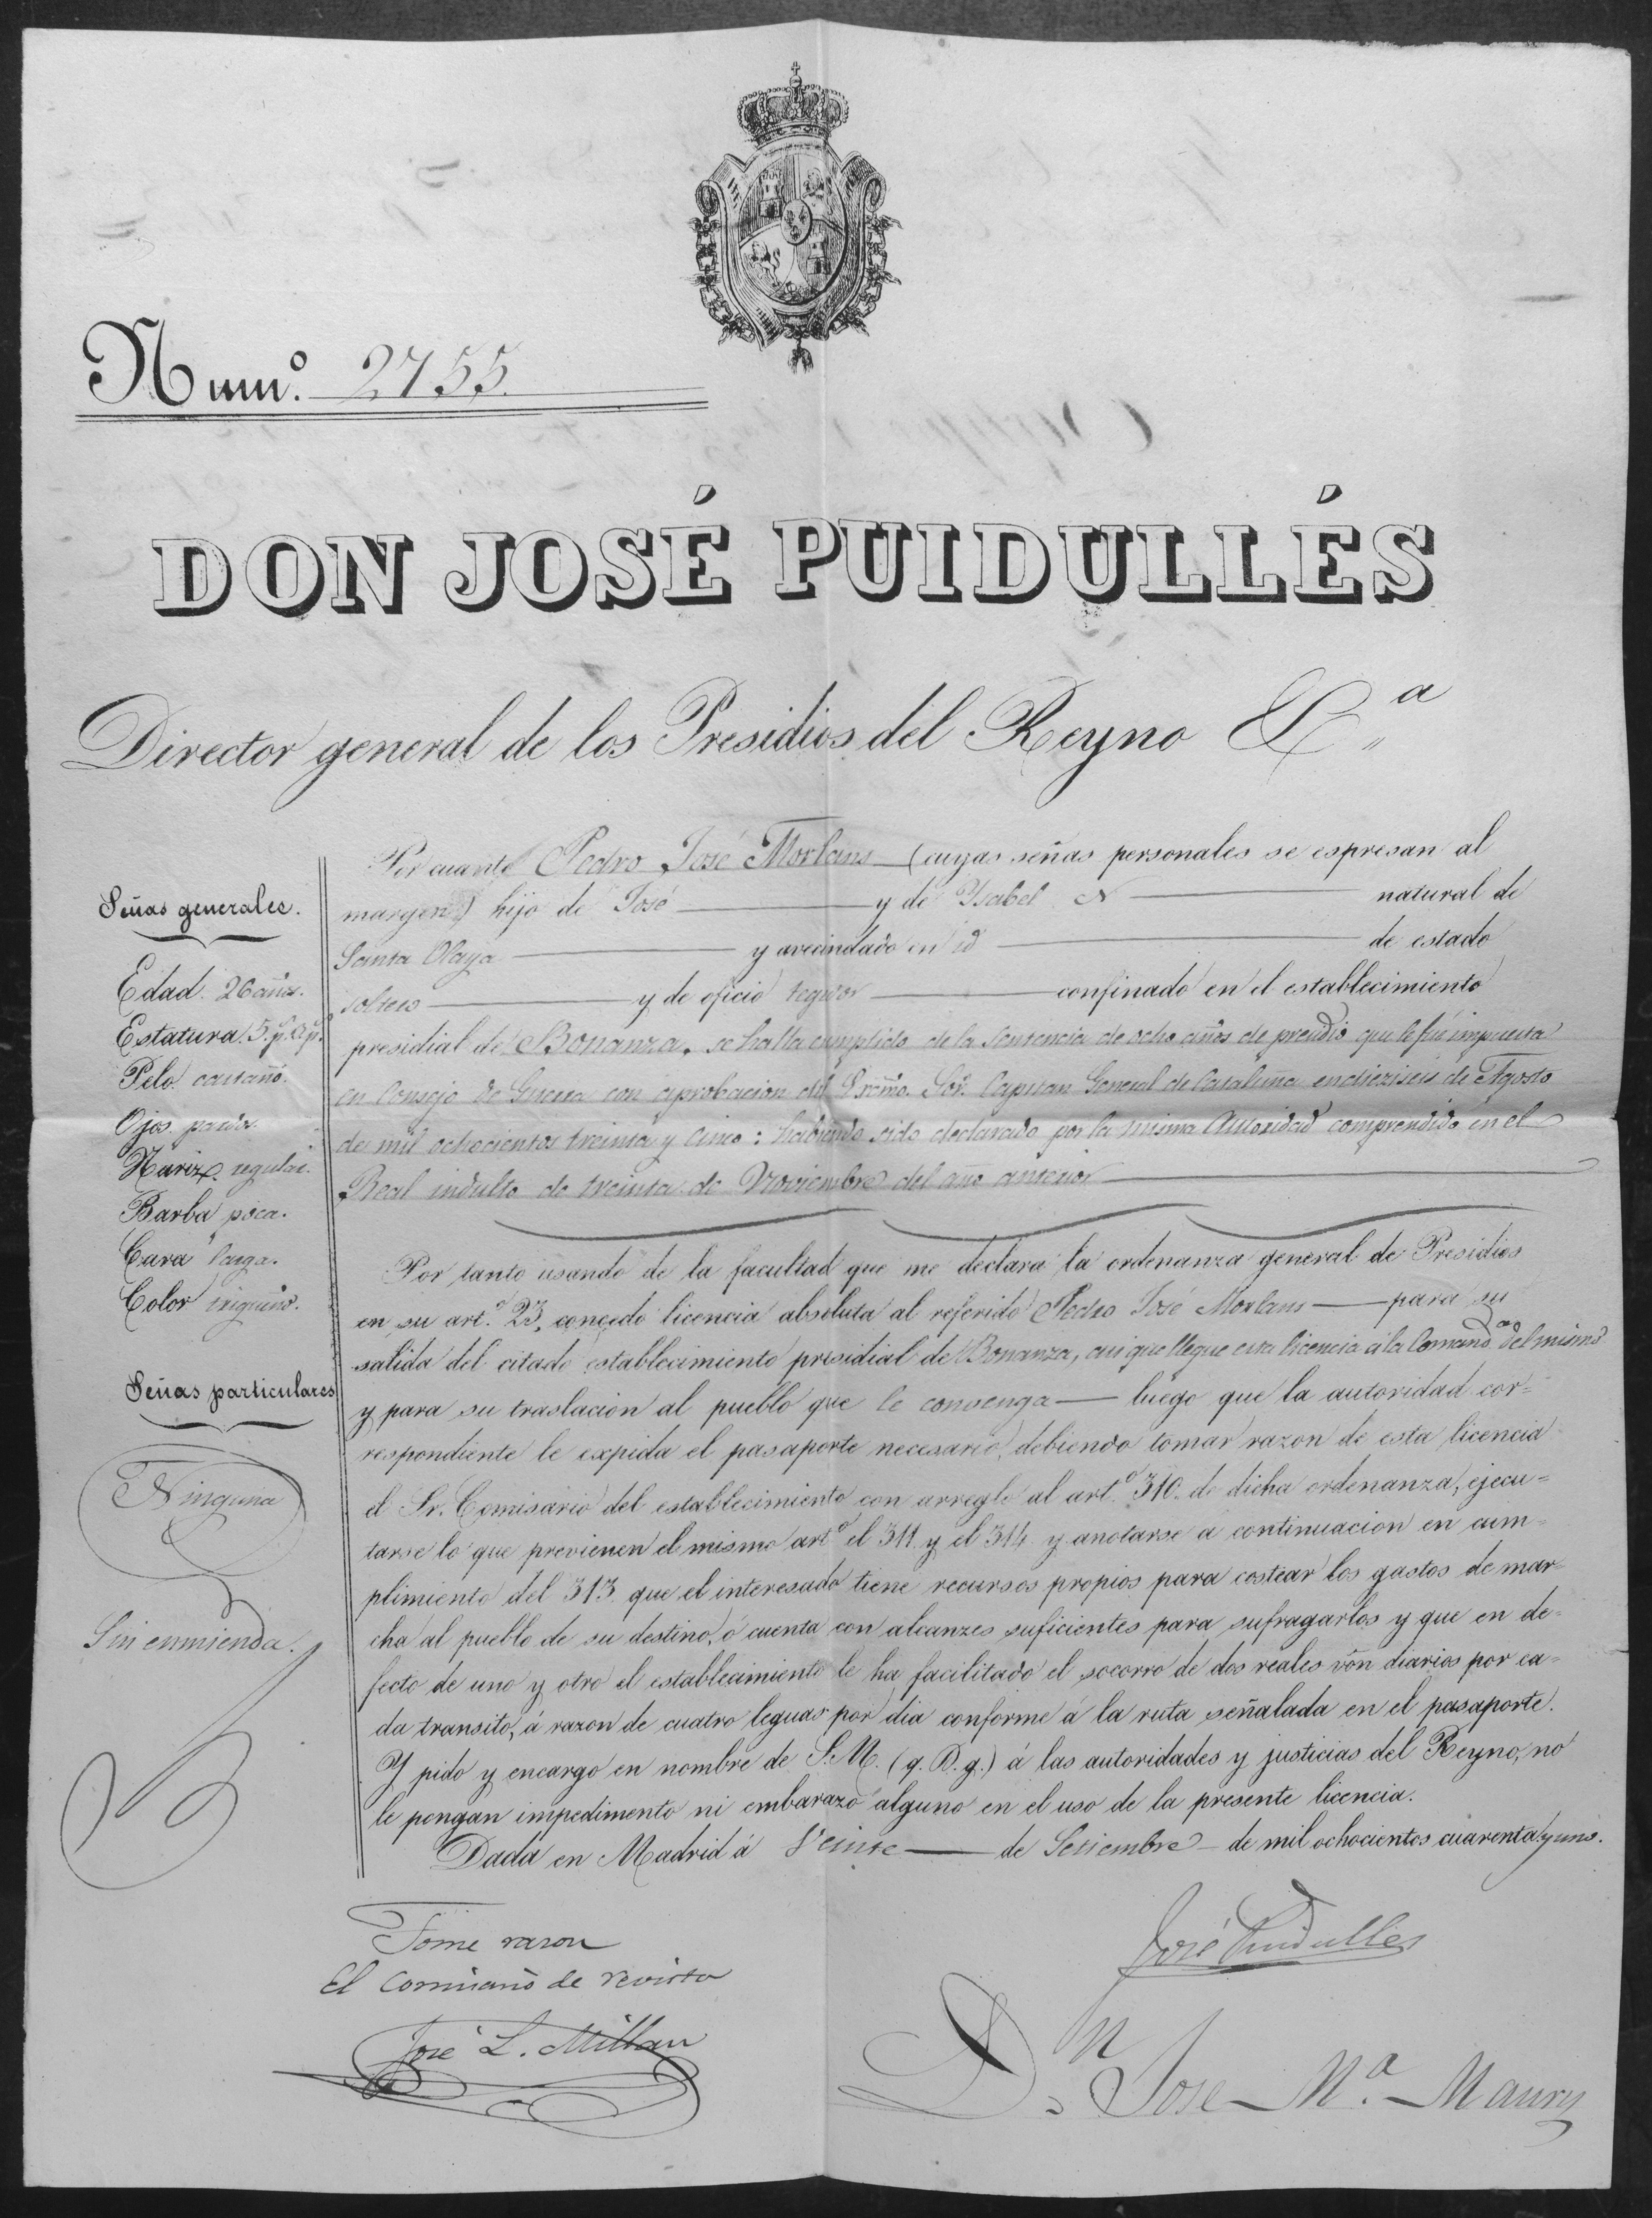 Numº. 2755.
DON JOSÉ PUIDULLÉS
Director general de los Presidios del Reyno &ª
Por cuanto Pedro José Morlans (cuyas señas personales se espresan al
margen) hijo de José y de Ysabel N natural de
Santa Olaya y avecindado en id de estado
soltero y de oficio tegedor confinado en el establecimiento
presidial de Bonanza, se halla cumplido de la Sentencia de ocho años de presidio que le fué impuesta
en Consejo de Guerra con aprobacion del Excmo. Sor. Capitan General de Cataluña en dieziseis de Agosto
de mil ochocientos treinta y cinco: habiendo sido declarado por la misma Autoridad comprendido en el
Real indulto de treinta de Noviembre del año anterior
Por tanto usando de la facultad que me declara la ordenanza general de Presidios
en su artº. 23, concedo licencia absoluta al referido Pedro José Morlans para su
salida del citado establecimiento presidial de Bonanza, asi que llegue esta licencia á la Comandª del mismo
y para su traslacion al pueblo que le convenga luego que la autoridad cor=
respondiente le expida el pasaporte necesario, debiendo tomar razon de esta licencia
el Sr. Comisario del establecimiento con arreglo al artº. 310. de dicha ordenanza, ejecu=
tarse lo que previenen el mismo artº el 311 y el 314 y anotarse á continuacion en cum=
plimiento del 313. que el interesado tiene recursos propios para costear los gastos de mar=
cha al pueblo de su destino, ó cuenta con alcanzes suficientes para sufragarlos y que en de=
fecto de uno y otro el establecimiento le ha facilitado el socorro de dos reales von diarios por ca=
da transito, á razon de cuatro leguas por dia conforme á la ruta señalada en el pasaporte.
Y pido y encargo en nombre de S.M. (q. D. g.) á las autoridades y justicias del Reyno, no
le pongan impedimento ni embarazo alguno en el uso de la presente licencia.
Dada en Madrid á Veinte de Setiembre de mil ochocientos cuarenta y uno.
Señas generales.
Edad. 26 años.
Estatura. 5. p.
Pelo. castaño.
Ojos. pardos.
Nariz. regular.
Barba poca.
Cara larga.
Color trigueño.
Señas particulares
Ninguna
Sin enmienda.
José Puidulles
Tome razon
El Comisario de revista
José L. Millan
Dn José Mª. Maury